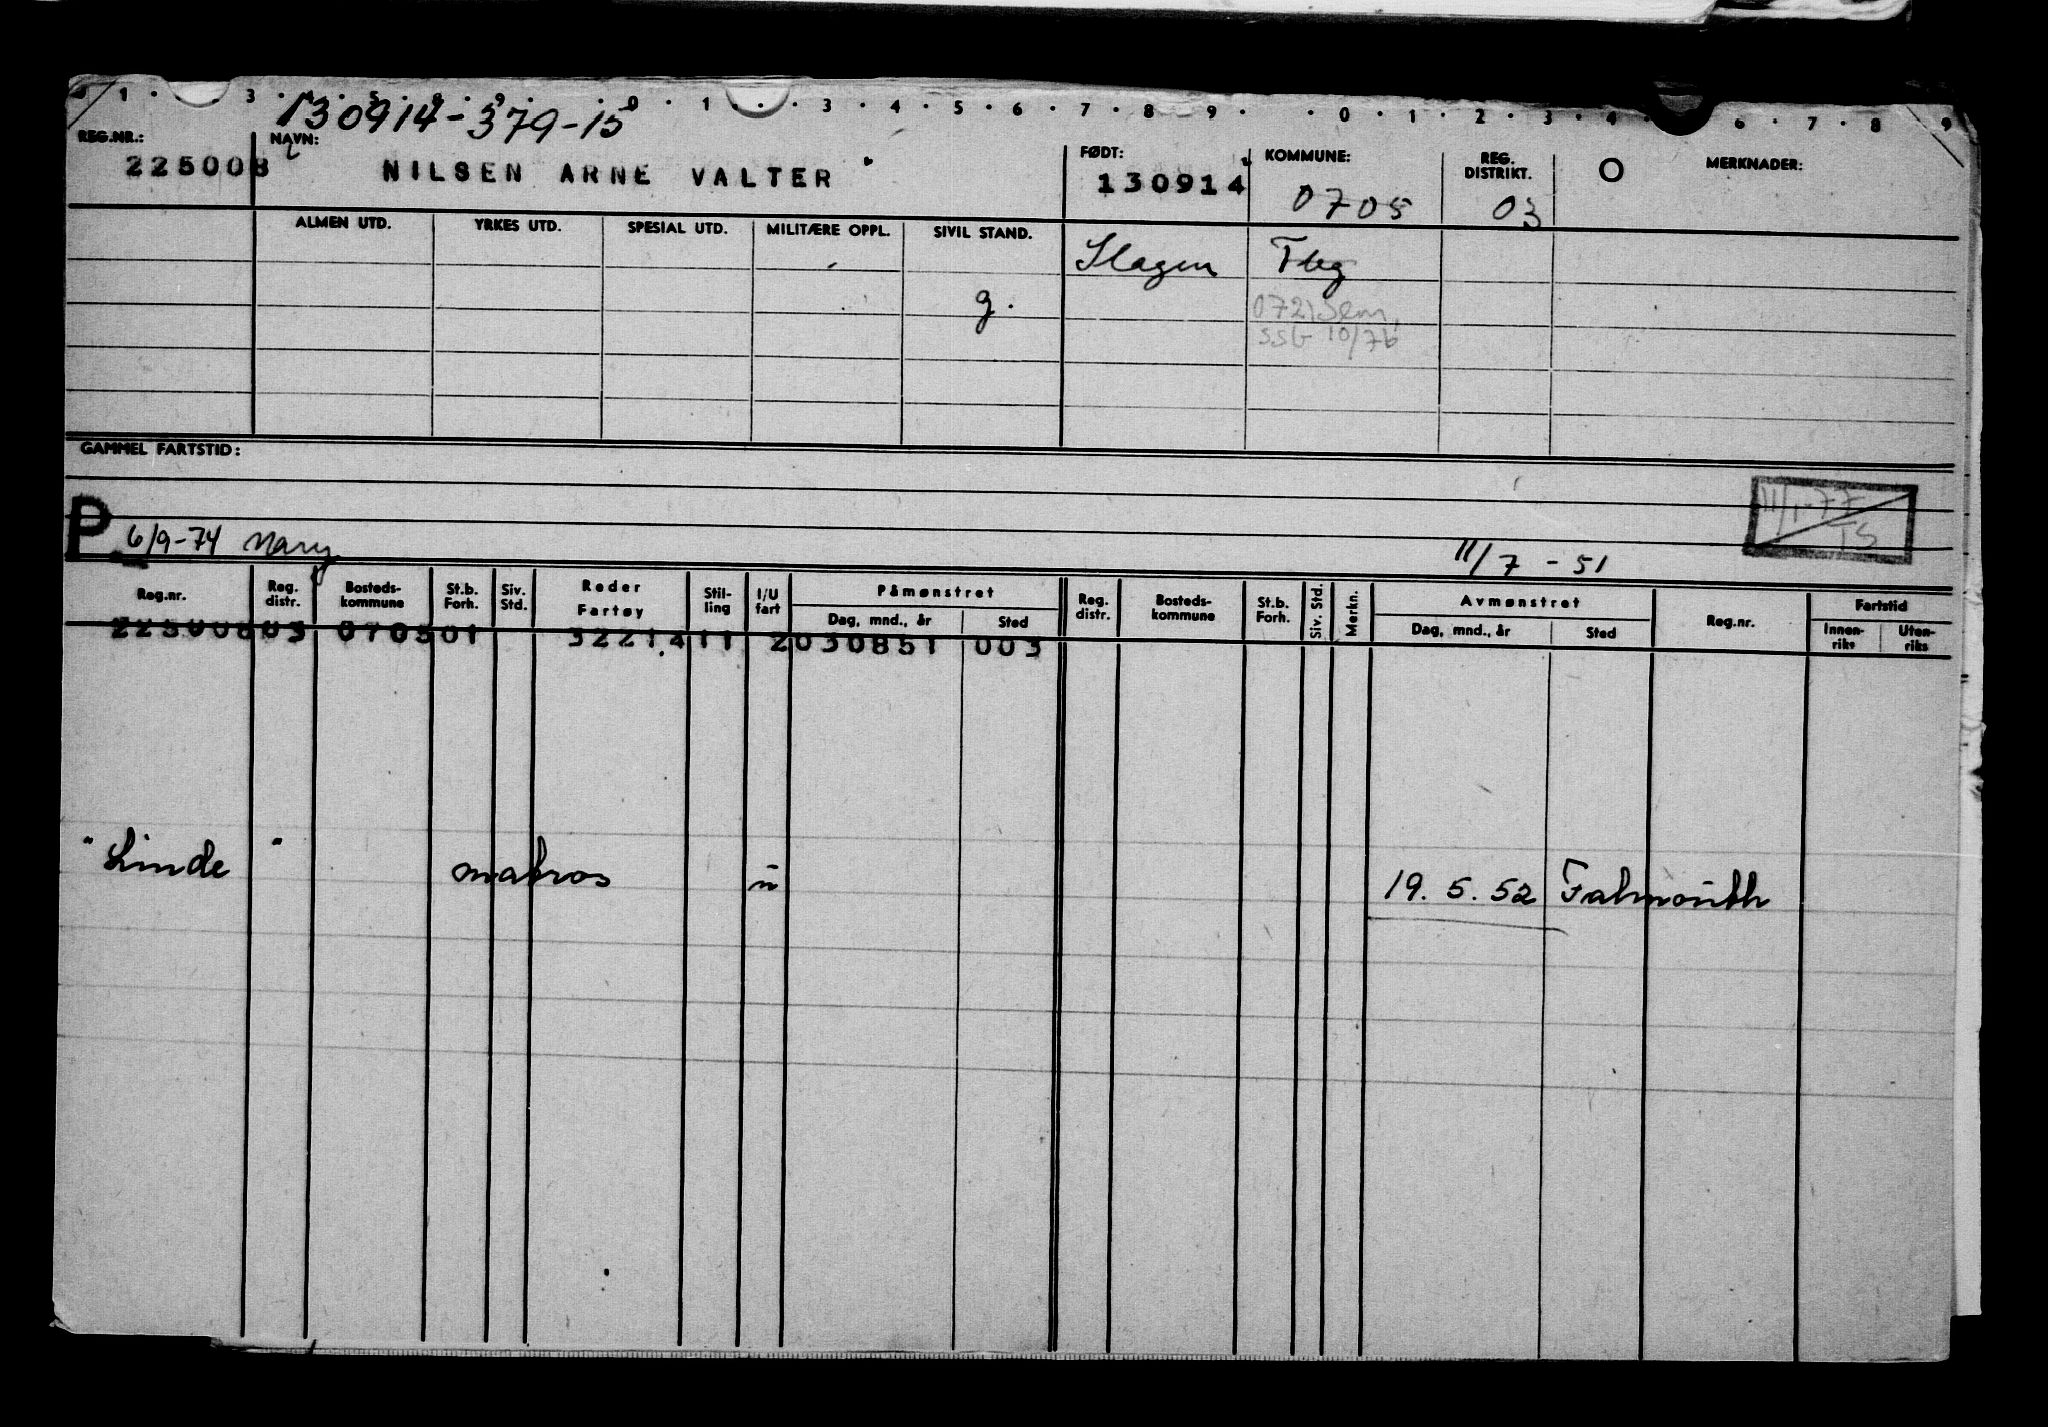 1 . 3 . 4 . 5 . 6 . 9 . 0 . 1 . . 3 . 4 . 5 . 6 . 7 . 8 . 9 . . 0 . 1 . 2 . 3 . 4 . 6 . 7 . 8 . 9
130914-379-15
REG.NR.: NAVN: FØDT: KOMMUNE: REG. DISTRIKT. O MERKNADER:
225008 NILSEN ARNE VALTER 130914 0705 03
ALMEN UTD. YRKES UTD. SPESIAL UTD. MILITÆRE OPPL. SIVIL STAND. Slagen Tbg
g. 0721 Sem,
SSb 10/76
GAMMEL FARTSTID:
11/1-77
TS
P 6/9-74 Mary 11/7 - 51
Reg.nr. Reg. distr. Bosteds-kommune St.b. Forh. Siv. Std. Reder Fartøy Stil-ling I/U fart Påmønstret Dag, mnd., år Sted Reg. distr. Bosteds-kommune St.b. Forh. Siv. Std. Merkn. Avmønstret Dag, mnd., år Sted Reg.nr. Fartstid Innen-riks Uten-riks
22500803 070501 3221411 2030851 003
"Linde" matros u 19. 5. 52 Falmouth